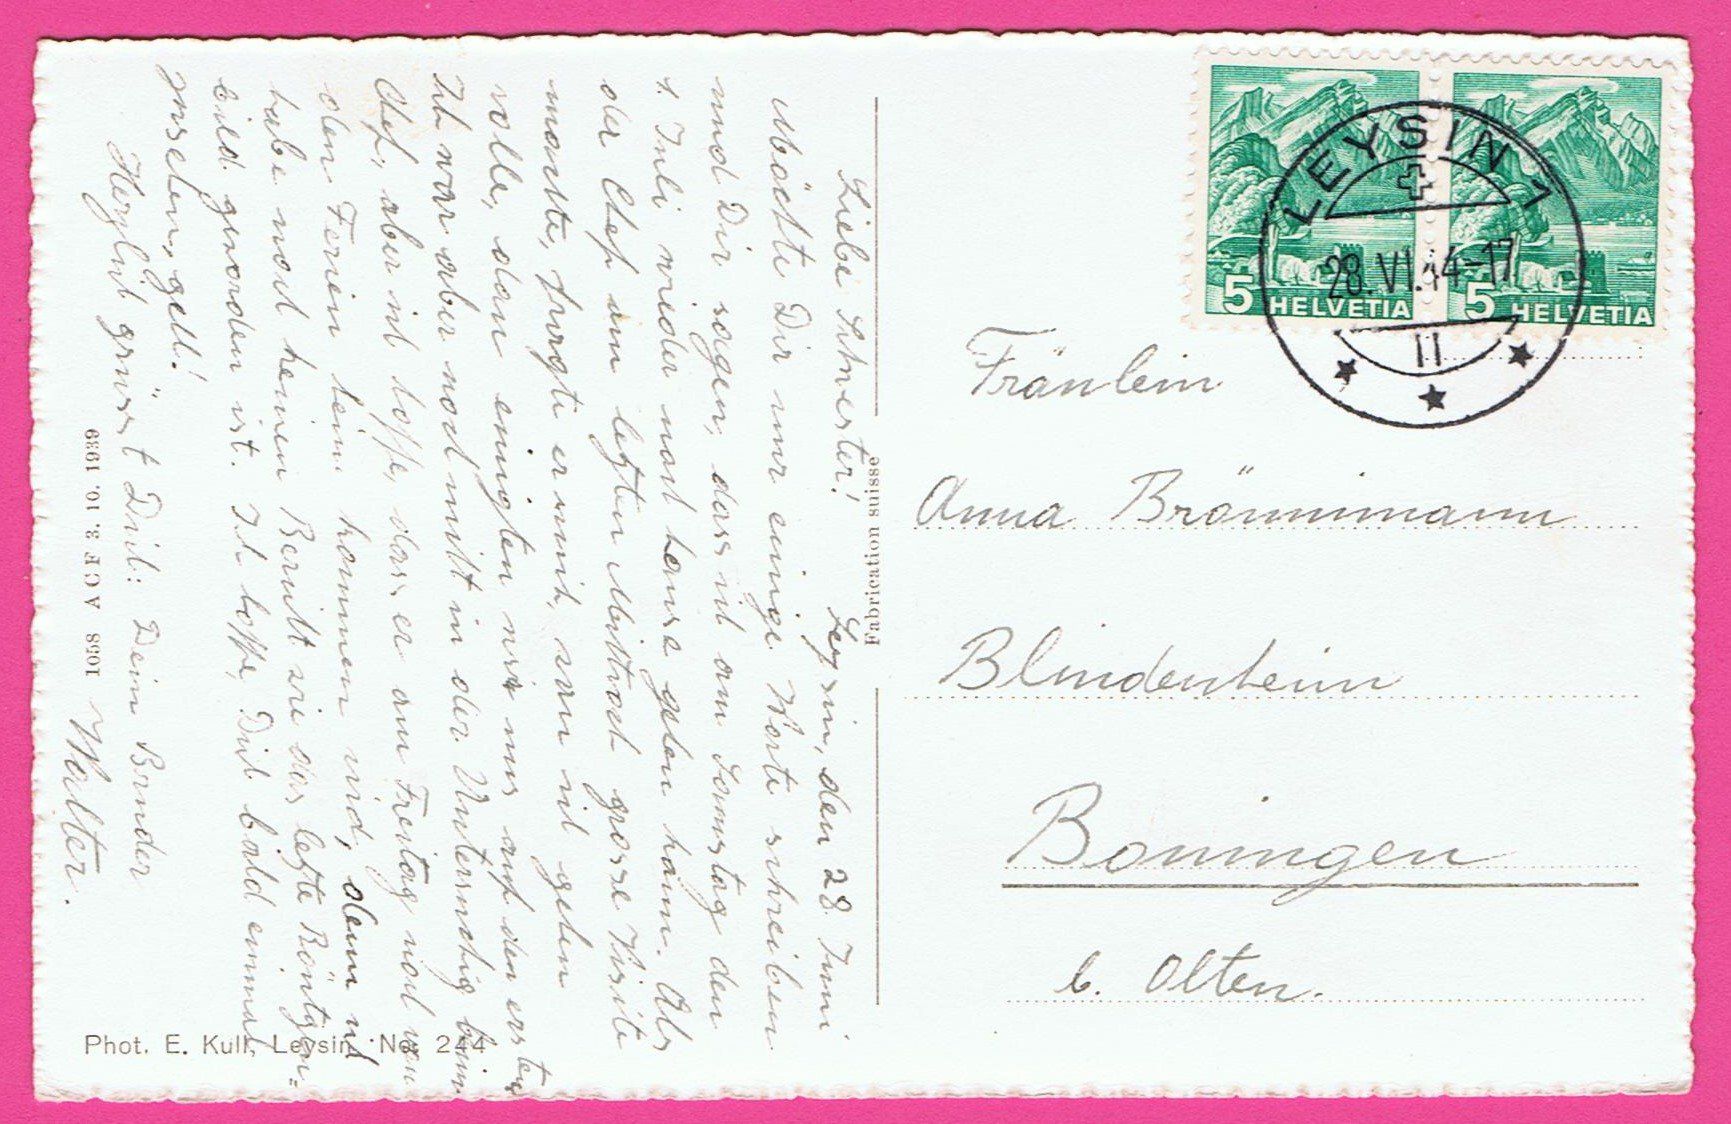 Liebe Schwester! Leysin, den 28. Juni
Möchte Dir nur einige Worte schreiben
und Dir sagen, dass ich am Samstag den
1. Juli wieder nach Hause gehen kann. Als
der Chef am letzten Mittwoch grosse Visite
machte, fragte er mich, wan ich gehen
wolle, dan einigten wir uns auf den ersten
Ich war aber noch nicht in der Untersuchig beim
Chef, aber ich hoffe, dass er am Freitag noch von
den Ferien heim kommen wird, denn ich
habe noch keinen Bericht wie das letzte Röntgen=
bild geworden ist. Ich hoffe, Dich bald einmal
zusehen, gell!
Herzlich grüsst Dich: Dein Bruder
Walter.
1058 ACF 3.10.1939
Phot. E. Kull, Leysin. No. 244
Fabrication suisse
5 HELVETIA
5 HELVETIA
LEYSIN 1
28.VI.44-17
II
Fräulein
Anna Brönnimann
Blindenheim
Boningen
b. Olten.